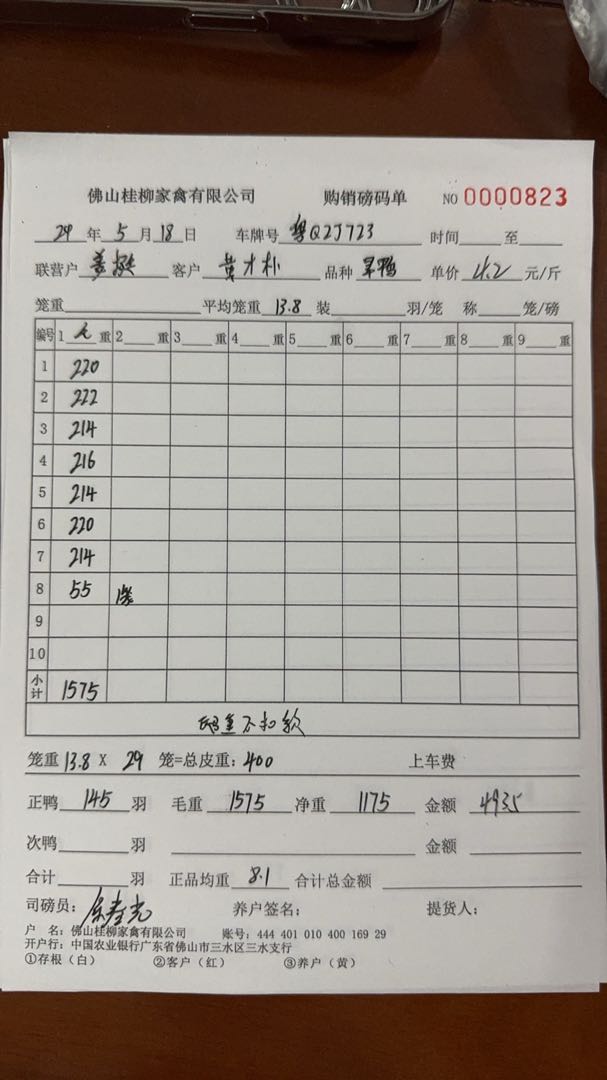 佛山桂柳家禽有限公司 购销磅码单 NO 0000823
24 年 5 月 18 日 车牌号 粤Q2J723 时间 至
联营户 客户 黄才朴 品种 旱鸭 单价 4.2 元/斤
笼重 平均笼重 13.8 装 羽/笼 称 笼/磅
编号 1 重 2 重 3 重 4 重 5 重 6 重 7 重 8 重 9 重
1 220
2 222
3 214
4 216
5 214
6 220
7 214
8 55
9
10
小计 1575
不扣款
笼重 13.8 X 29 笼=总皮重: 400 上车费
正鸭 145 羽 毛重 1575 净重 1175 金额 4935
次鸭 羽 金额
合计 羽 正品均重 8.1 合计总金额
司磅员: 养户签名: 提货人:
户 名: 佛山桂柳家禽有限公司 账号: 444 401 010 400 169 29
开户行: 中国农业银行广东省佛山市三水区三水支行
①存根（白） ②客户（红） ③养户（黄）